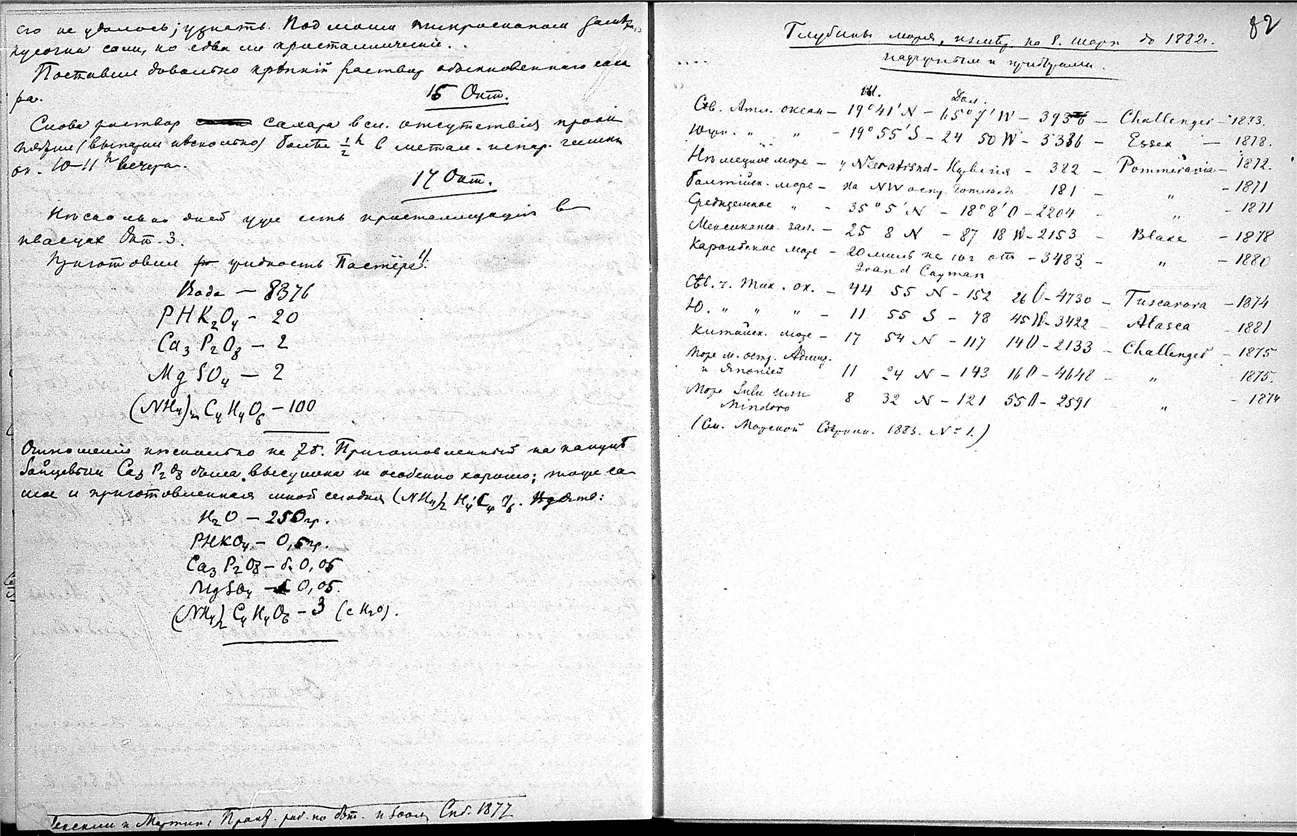 его не удалось; узнать. Под моим микроскопом
кусочки соли, но едва ли кристаллические.
Поставил довольно крепкий раствор обыкновенного саха
ра.
15 Окт.
Снова раствор сахара всл. отсутствия
(выпарил несколько) более ½ h в метал.
ок. 10-11 h вечера.
17 Окт.
Несколько дней уже есть кристаллизация в
квасцах Окт. 3.
Приготовил жидкость Пастёра
Вода — 8376
PHK2O4 - 20
Ca3 P2O8 — 2
MgSO4 — 2
(NH4)2 C4H4O6 — 100
Отношение несколько не то. Приготовленный
Ca3 P2 O8 была высушена не особенно хорошо; тоже са-
мое и приготовленная мной сегодня (NH4)2 H4C4O6.
H2O — 250 гр.
PHKO4 — 0,5 гр.
Ca3 P2O8 — 0,05
MgSO4 — 0,05.
(NH4)2 C4H4O6 — 3 (с H2O).
и Мартин, Практ. раб. по бот. и зоол. Спб. 1877
82
Глубины моря, по 8. до 1882 г.
Ш. Дол.
Св. Атл. океан — 19°41'N — 65°7'W — 393 — Challenger — 1873.
Южн. " " — 19°55'S — 24 50W — 3386 — Essex — 1878.
Немецкое море — у — 322 — Pommerania — 1872.
Балтийск. море — на NW остр. Готланда 181 — " — 1871
Средиземное " — 35°5'N — 18°8'O — 2204 — " — 1871
Мексиканск. зал. — 25 8 N — 87 18 W — 2153 — Blake — 1878
Караибское море — 20 миль на юг от — 3483 — " — 1880
Grand Cayman
Св. ч. Тих. ок. — 44 55 N — 152 26 O — 4730 — Tuscarora — 1874
Ю. " " " — 11 55 S — 78 45 W — 3422 — Alasca — 1881
Китайск. море — 17 54 N — 117 14 O — 2133 — Challenger — 1875
Море м. остр. Адмир.
и Японией 11 24 N — 143 16 O — 4648 — " 1875.
Море Sulu или 8 32 N — 121 55 O — 2591 " — 1874
Mindoro
(См. Морской Сборник. 1883. № 1.)